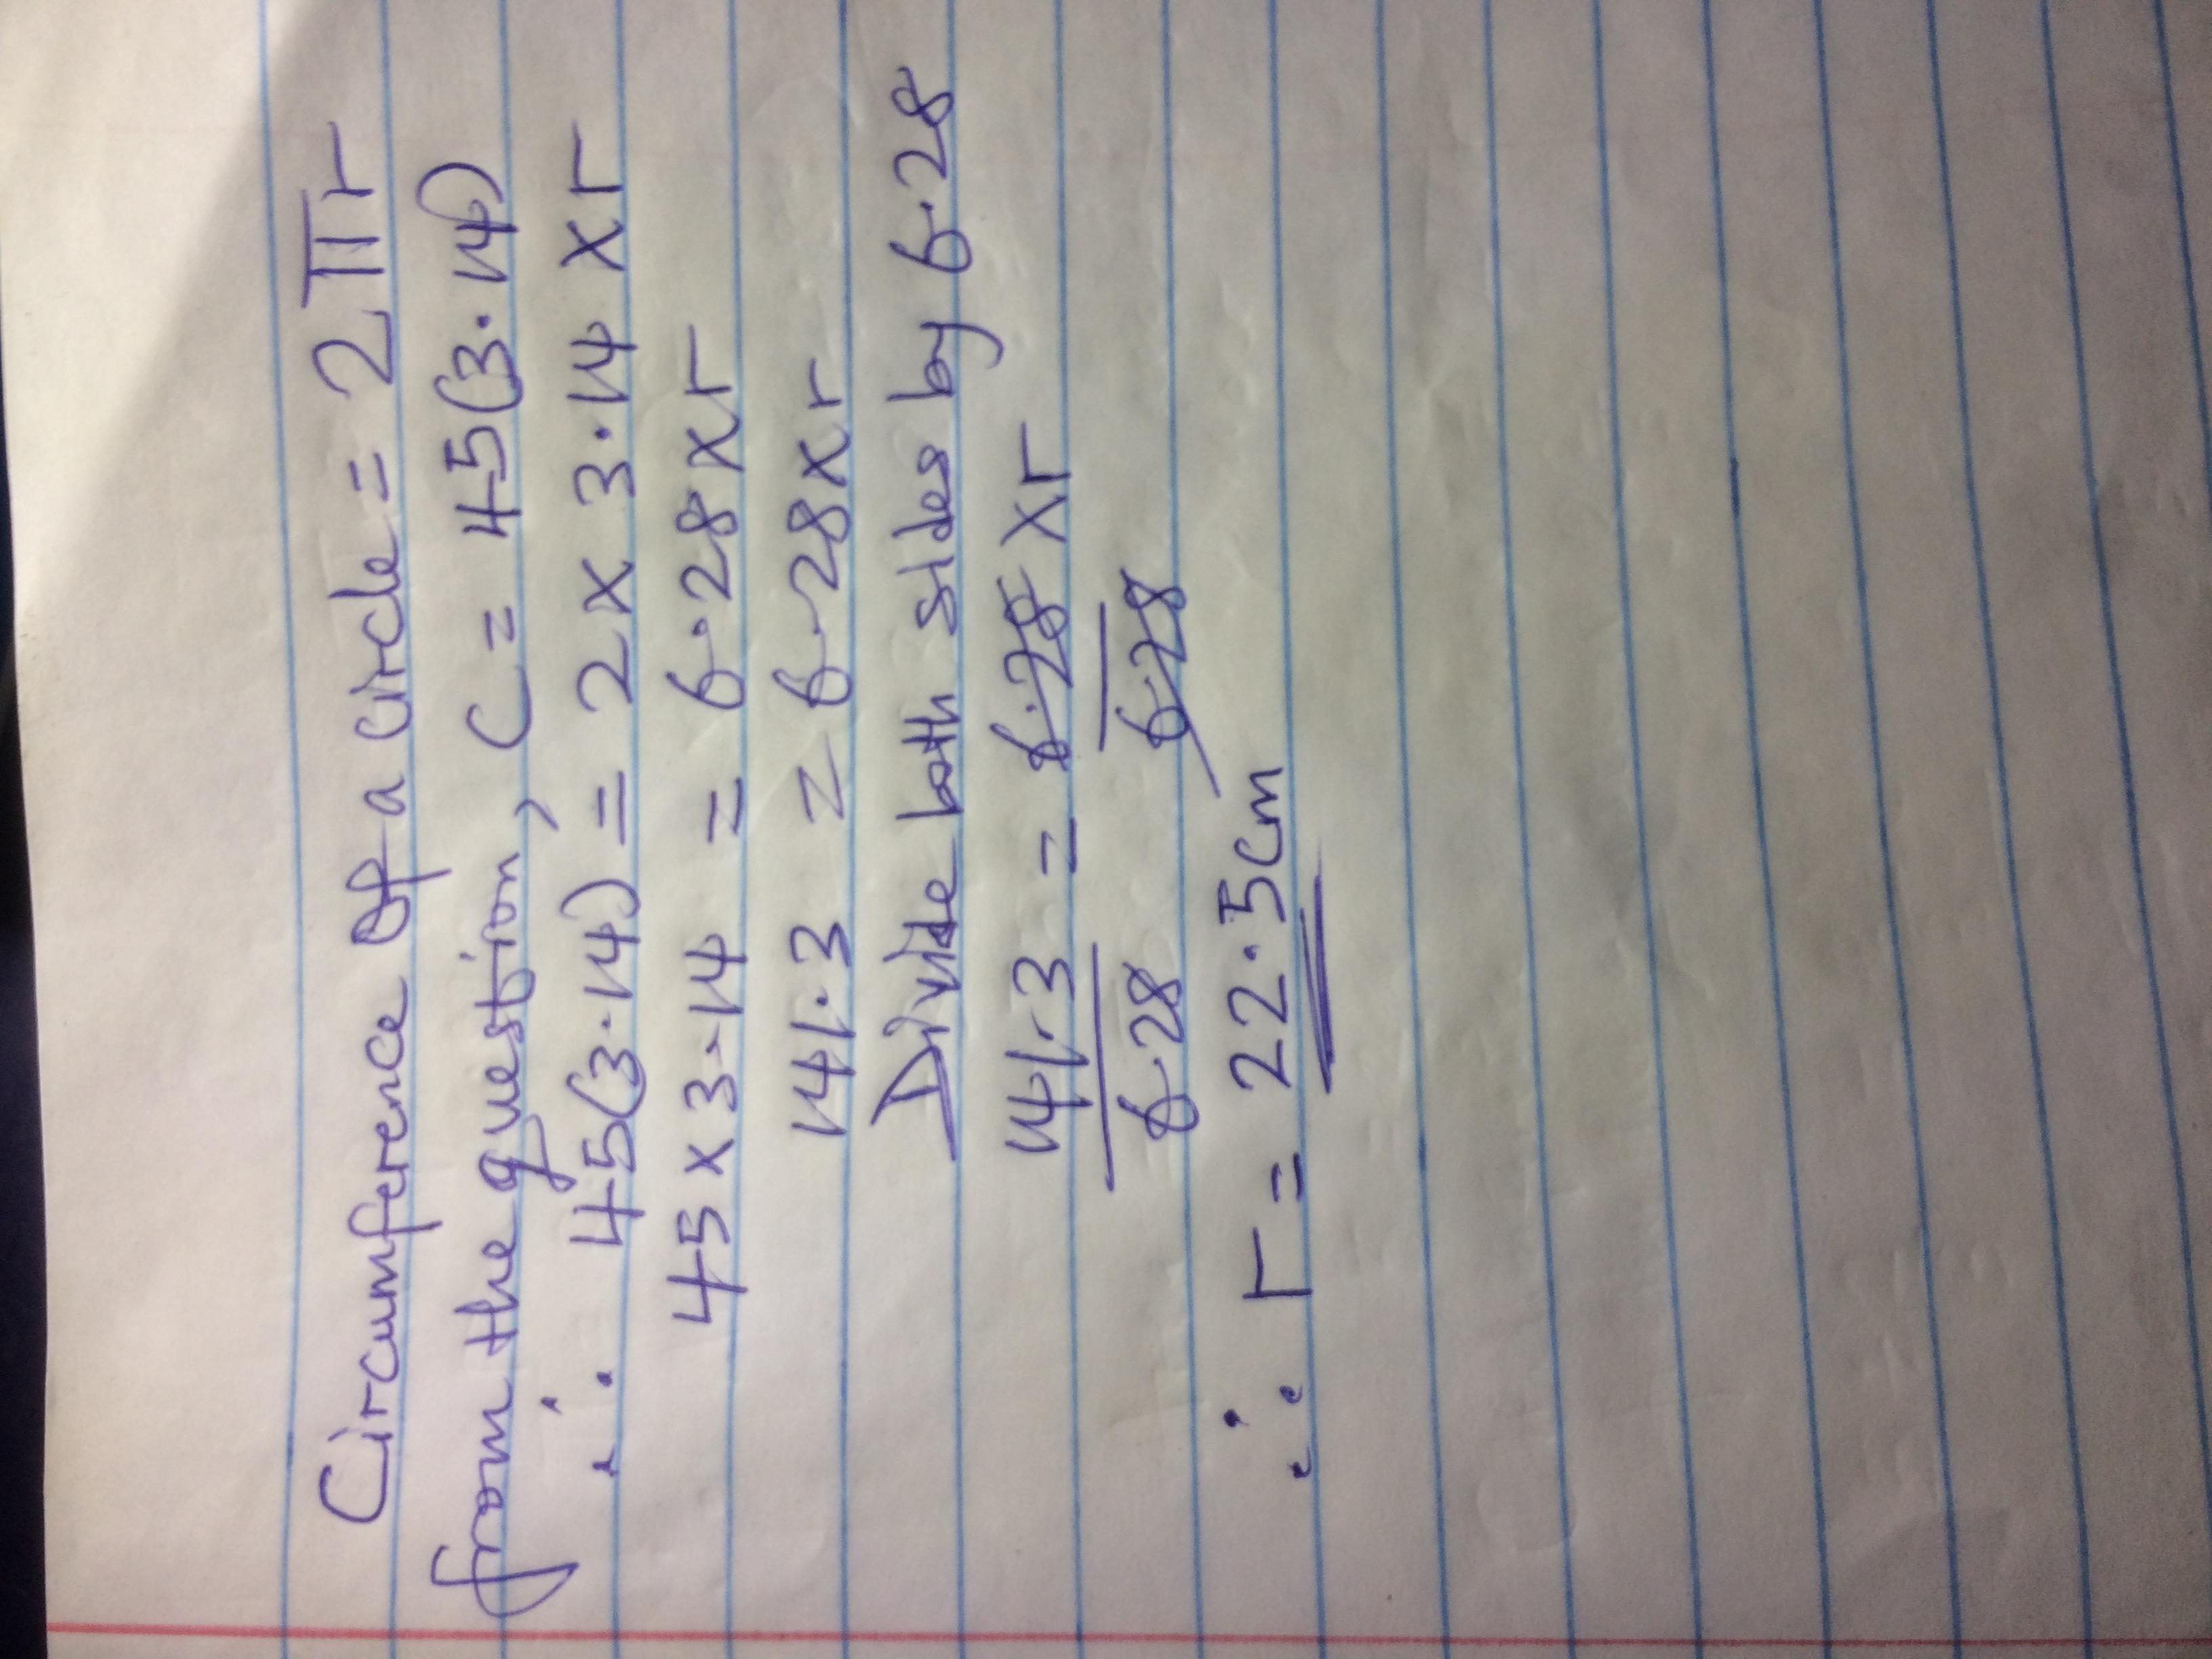 Circumference of a circle = 2πr
from the question, C = 45(3.14)
∴ 45(3.14) = 2 x 3.14 x r
45 x 3.14 = 6.28 x r
141.3 = 6.28 x r
Divide both sides by 6.28
141.3 = 6.28 x r
6.28 6.28
∴ r = 22.5cm